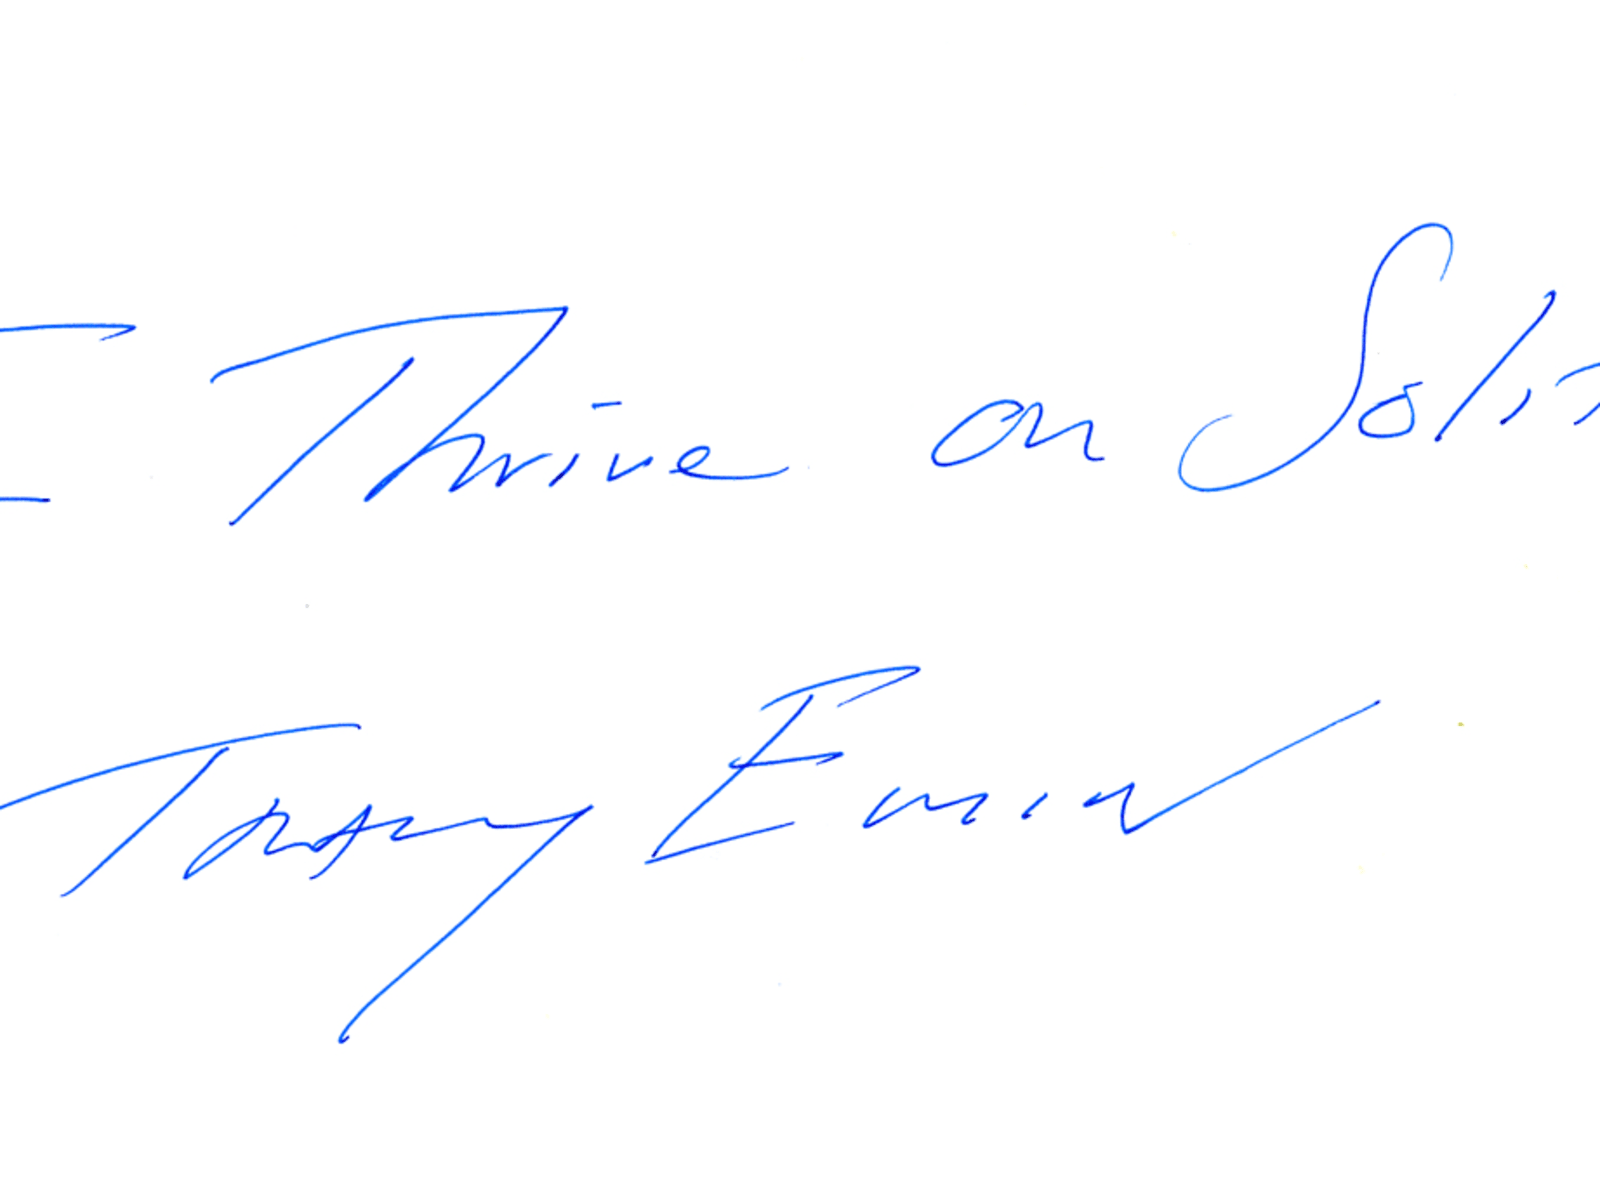 I Thrive on Solit
Tracey Emin